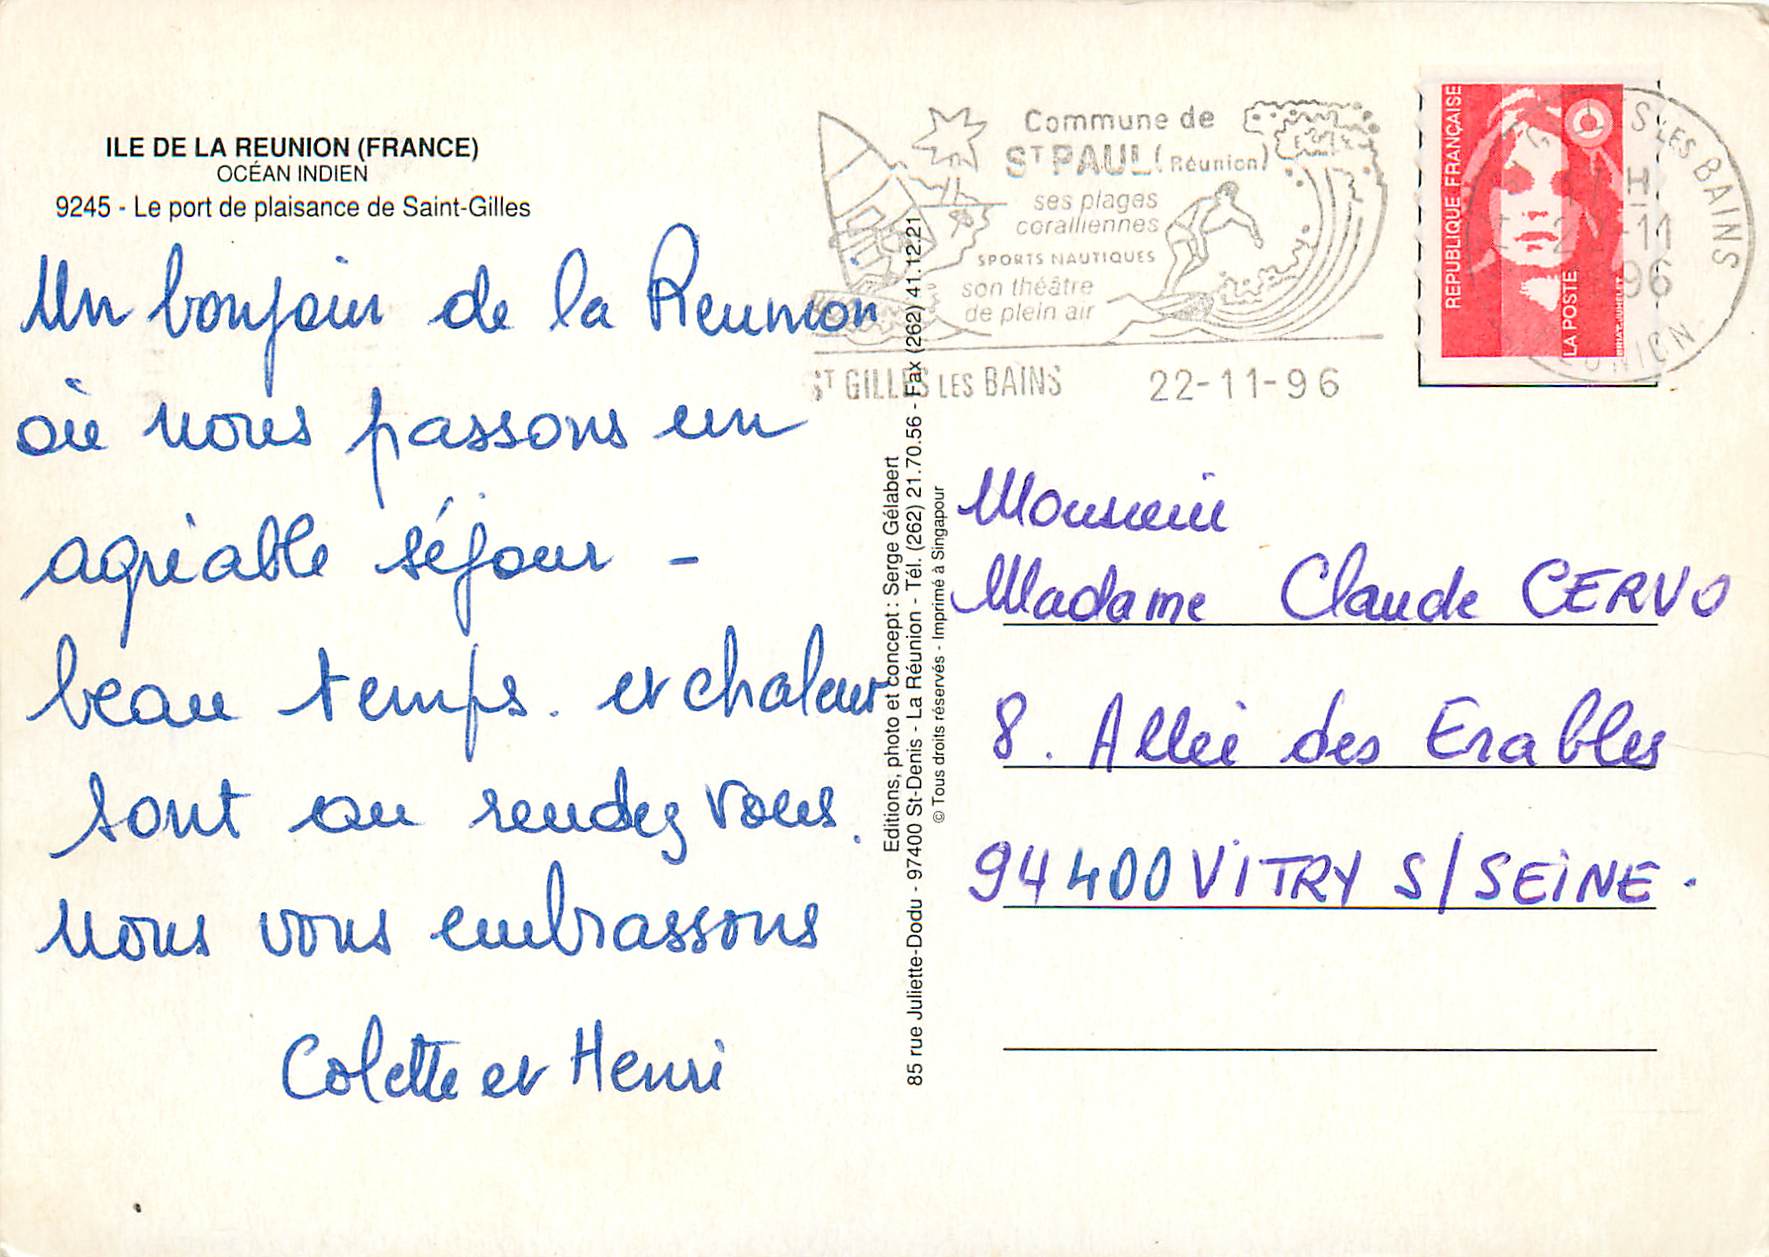 ILE DE LA REUNION (FRANCE)
OCÉAN INDIEN
9245 - Le port de plaisance de Saint-Gilles
Un bonjour de la Reunion
où nous passons un
agréable séjour -
beau temps. et chaleur
sont au rendez vous.
nous vous embrassons
Colette et Henri
Editions, photo et concept : Serge Gélabert
85 rue Juliette-Dodu - 97400 St-Denis - La Réunion - Tél. (262) 21.70.56 - Fax (262) 41.12.21
© Tous droits réservés - Imprimé à Singapour
Commune de
ST PAUL (Réunion)
ses plages
coralliennes
SPORTS NAUTIQUES
son théâtre
de plein air
ST GILLES LES BAINS 22-11-96
REPUBLIQUE FRANÇAISE
LA POSTE
BRIAT-JUMELET
S LES BAINS
H
22-11
96
Monsieur
Madame Claude CERVO
8. Allée des Erables
94400 VITRY S/SEINE.